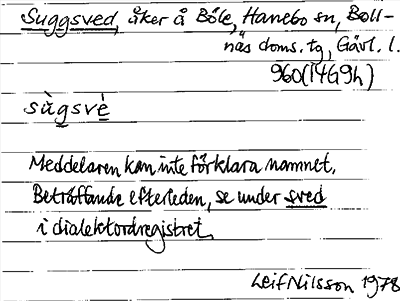 Suggsved, åker å Böle, Hanebo sn, Boll-
näs doms. tg, Gävl. l.
960(14G9h)
sùgsvè
Meddelaren kan inte förklara namnet.
Beträffande efterleden, se under sved
i dialektordregistret.
Leif Nilsson 1978